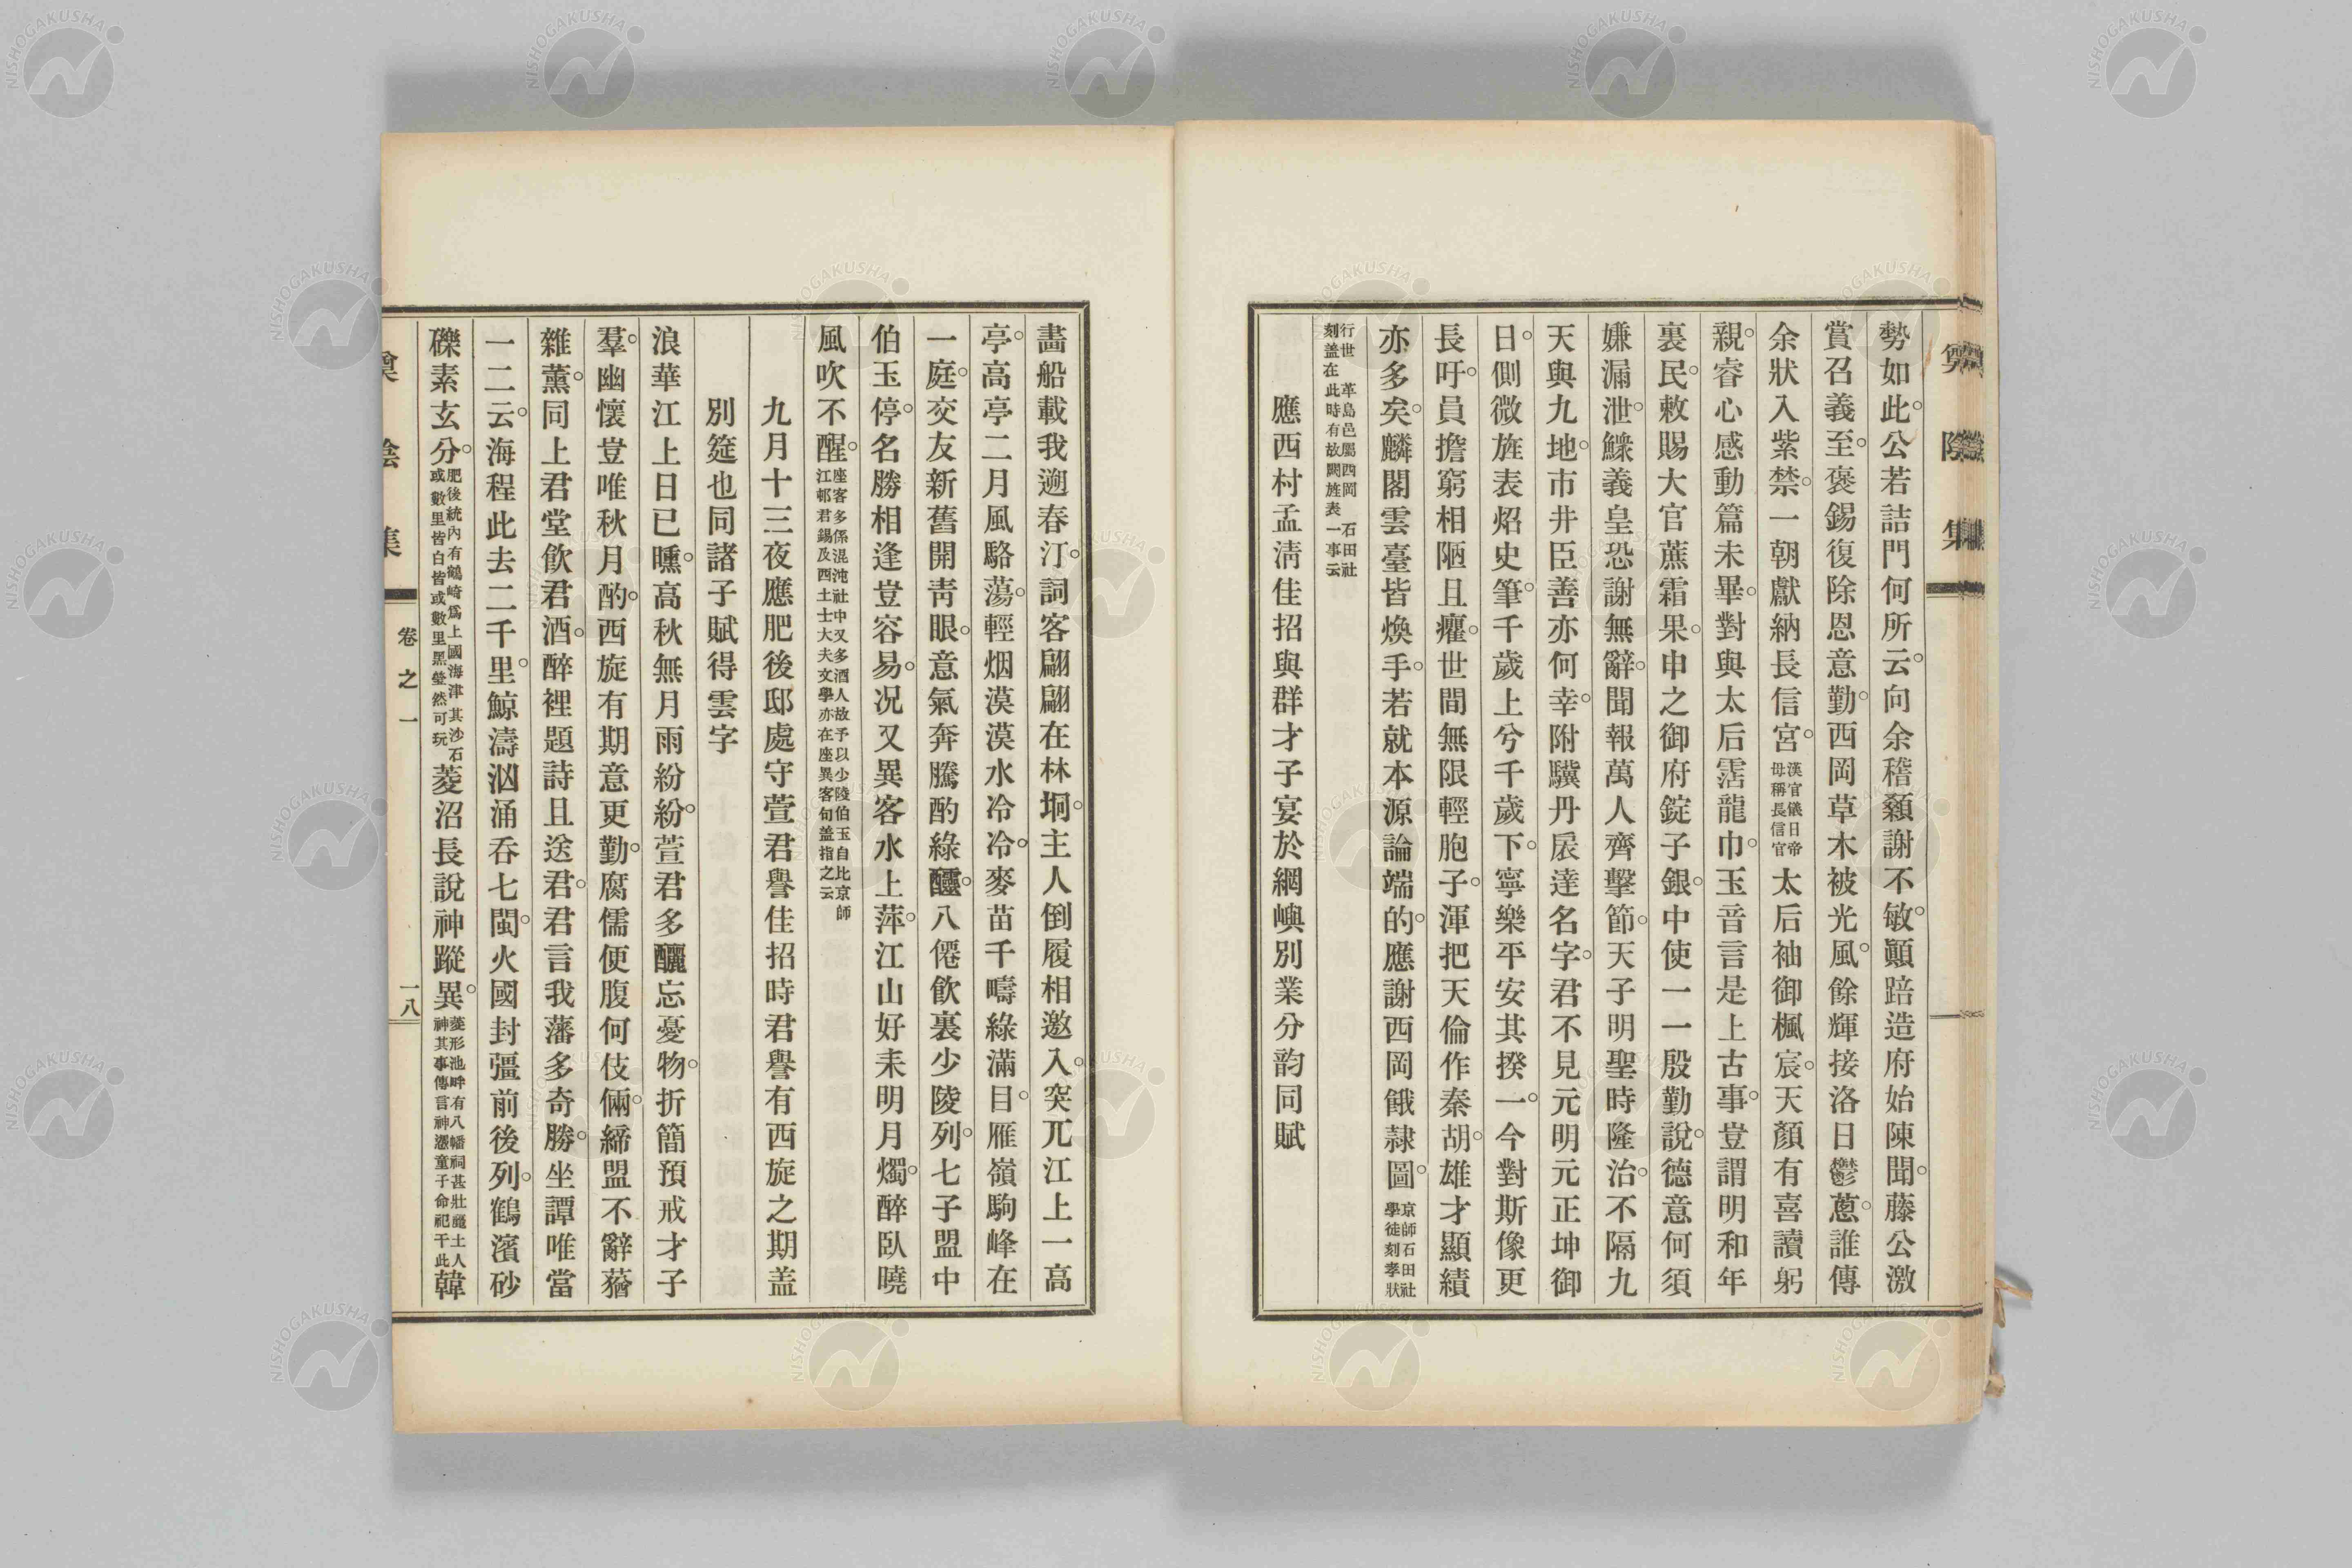 勢如此。公若詰門何所云。向余稽顙謝不敏。顚踣造府始陳聞。藤公激
賞召義至。褒錫復除恩意勤。西岡草木被光風。餘輝接洛日鬱蔥。誰傳
余狀入紫禁。一朝獻納長信宮。漢官儀曰帝母稱長信官太后袖御楓宸。天顏有喜讀躬
親。睿心感動篇未畢。對與太后霑龍巾。玉音言是上古事。豈謂明和年
裏民。敕賜大官蔗霜果。申之御府錠子銀。中使一一殷勤說。德意何須
嫌漏泄。鰥義皇恐謝無辭。聞報萬人齊擊節。天子明聖時隆治。不隔九
天與九地。市井臣善亦何幸。附驥丹扆達名字。君不見元明元正坤御
日。側微旌表炤史筆。千歲上兮千歲下。寧樂平安其揆一。今對斯像更
長吁。員擔窮相陋且癯。世間無限輕胞子。渾把天倫作秦胡。雄才顯績
亦多矣。麟閣雲臺皆煥手。若就本源論端的。應謝西岡餓隷圖。京師石田社學徒刻孝狀
行世革島邑屬西岡石田社刻盖在此時有故闕旌表一事云
應西村孟淸佳招與群才子宴於網嶼別業分韵同賦
畫船載我遡春汀。詞客翩翩在林坰。主人倒履相邀入。突兀江上一高
亭。高亭二月風駱蕩。輕烟漠漠水冷冷。麥苗千疇綠滿目。雁嶺駒峰在
一庭。交友新舊開靑眼。意氣奔騰酌綠醽。八僊飮裏少陵列。七子盟中
伯玉停。名勝相逢豈容易。況又異客水上萍。江山好耒明月燭。醉臥曉
風吹不醒。座客多係混沌社中又多酒人故予以少陵伯玉自比京師江邨君錫及西土士大夫文學亦在座異客句盖指之云
九月十三夜應肥後邸處守萱君譽佳招時君譽有西旋之期盖
別筵也同諸子賦得雲字
浪華江上日已曛。高秋無月雨紛紛。萱君多釃忘憂物。折簡預戒才子
羣。幽懷豈唯秋月酌。西旋有期意更勤。腐儒便腹何伎倆。締盟不辭蕕
雜薰。同上君堂飮君酒。醉裡題詩且送君。君言我藩多奇勝。坐譚唯當
一二云。海程此去二千里。鯨濤汹涌呑七閩。火國封彊前後列。鶴濱砂
礫素玄分。肥後統內有鶴崎爲上國海津其沙石或數里皆白皆或數里黑瑩然可玩菱沼長說神蹤異。菱形池畔有八幡祠甚壯麗土人神其事傳言神憑童子命祀干此韓
卷之一
一八